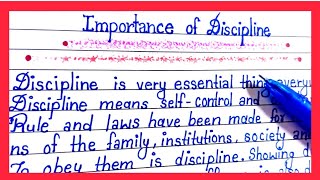 Importance of Discipline
Discipline is very essential thing
Discipline means self-control and
Rule and laws have been made for
ns of the family, institutions, society an
To obey them is discipline. Showing d